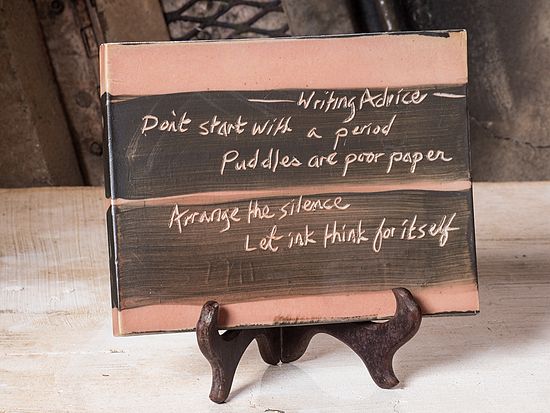 Writing Advice
Don't start with a period
Puddles are poor paper
Arrange the silence
Let ink think for itself